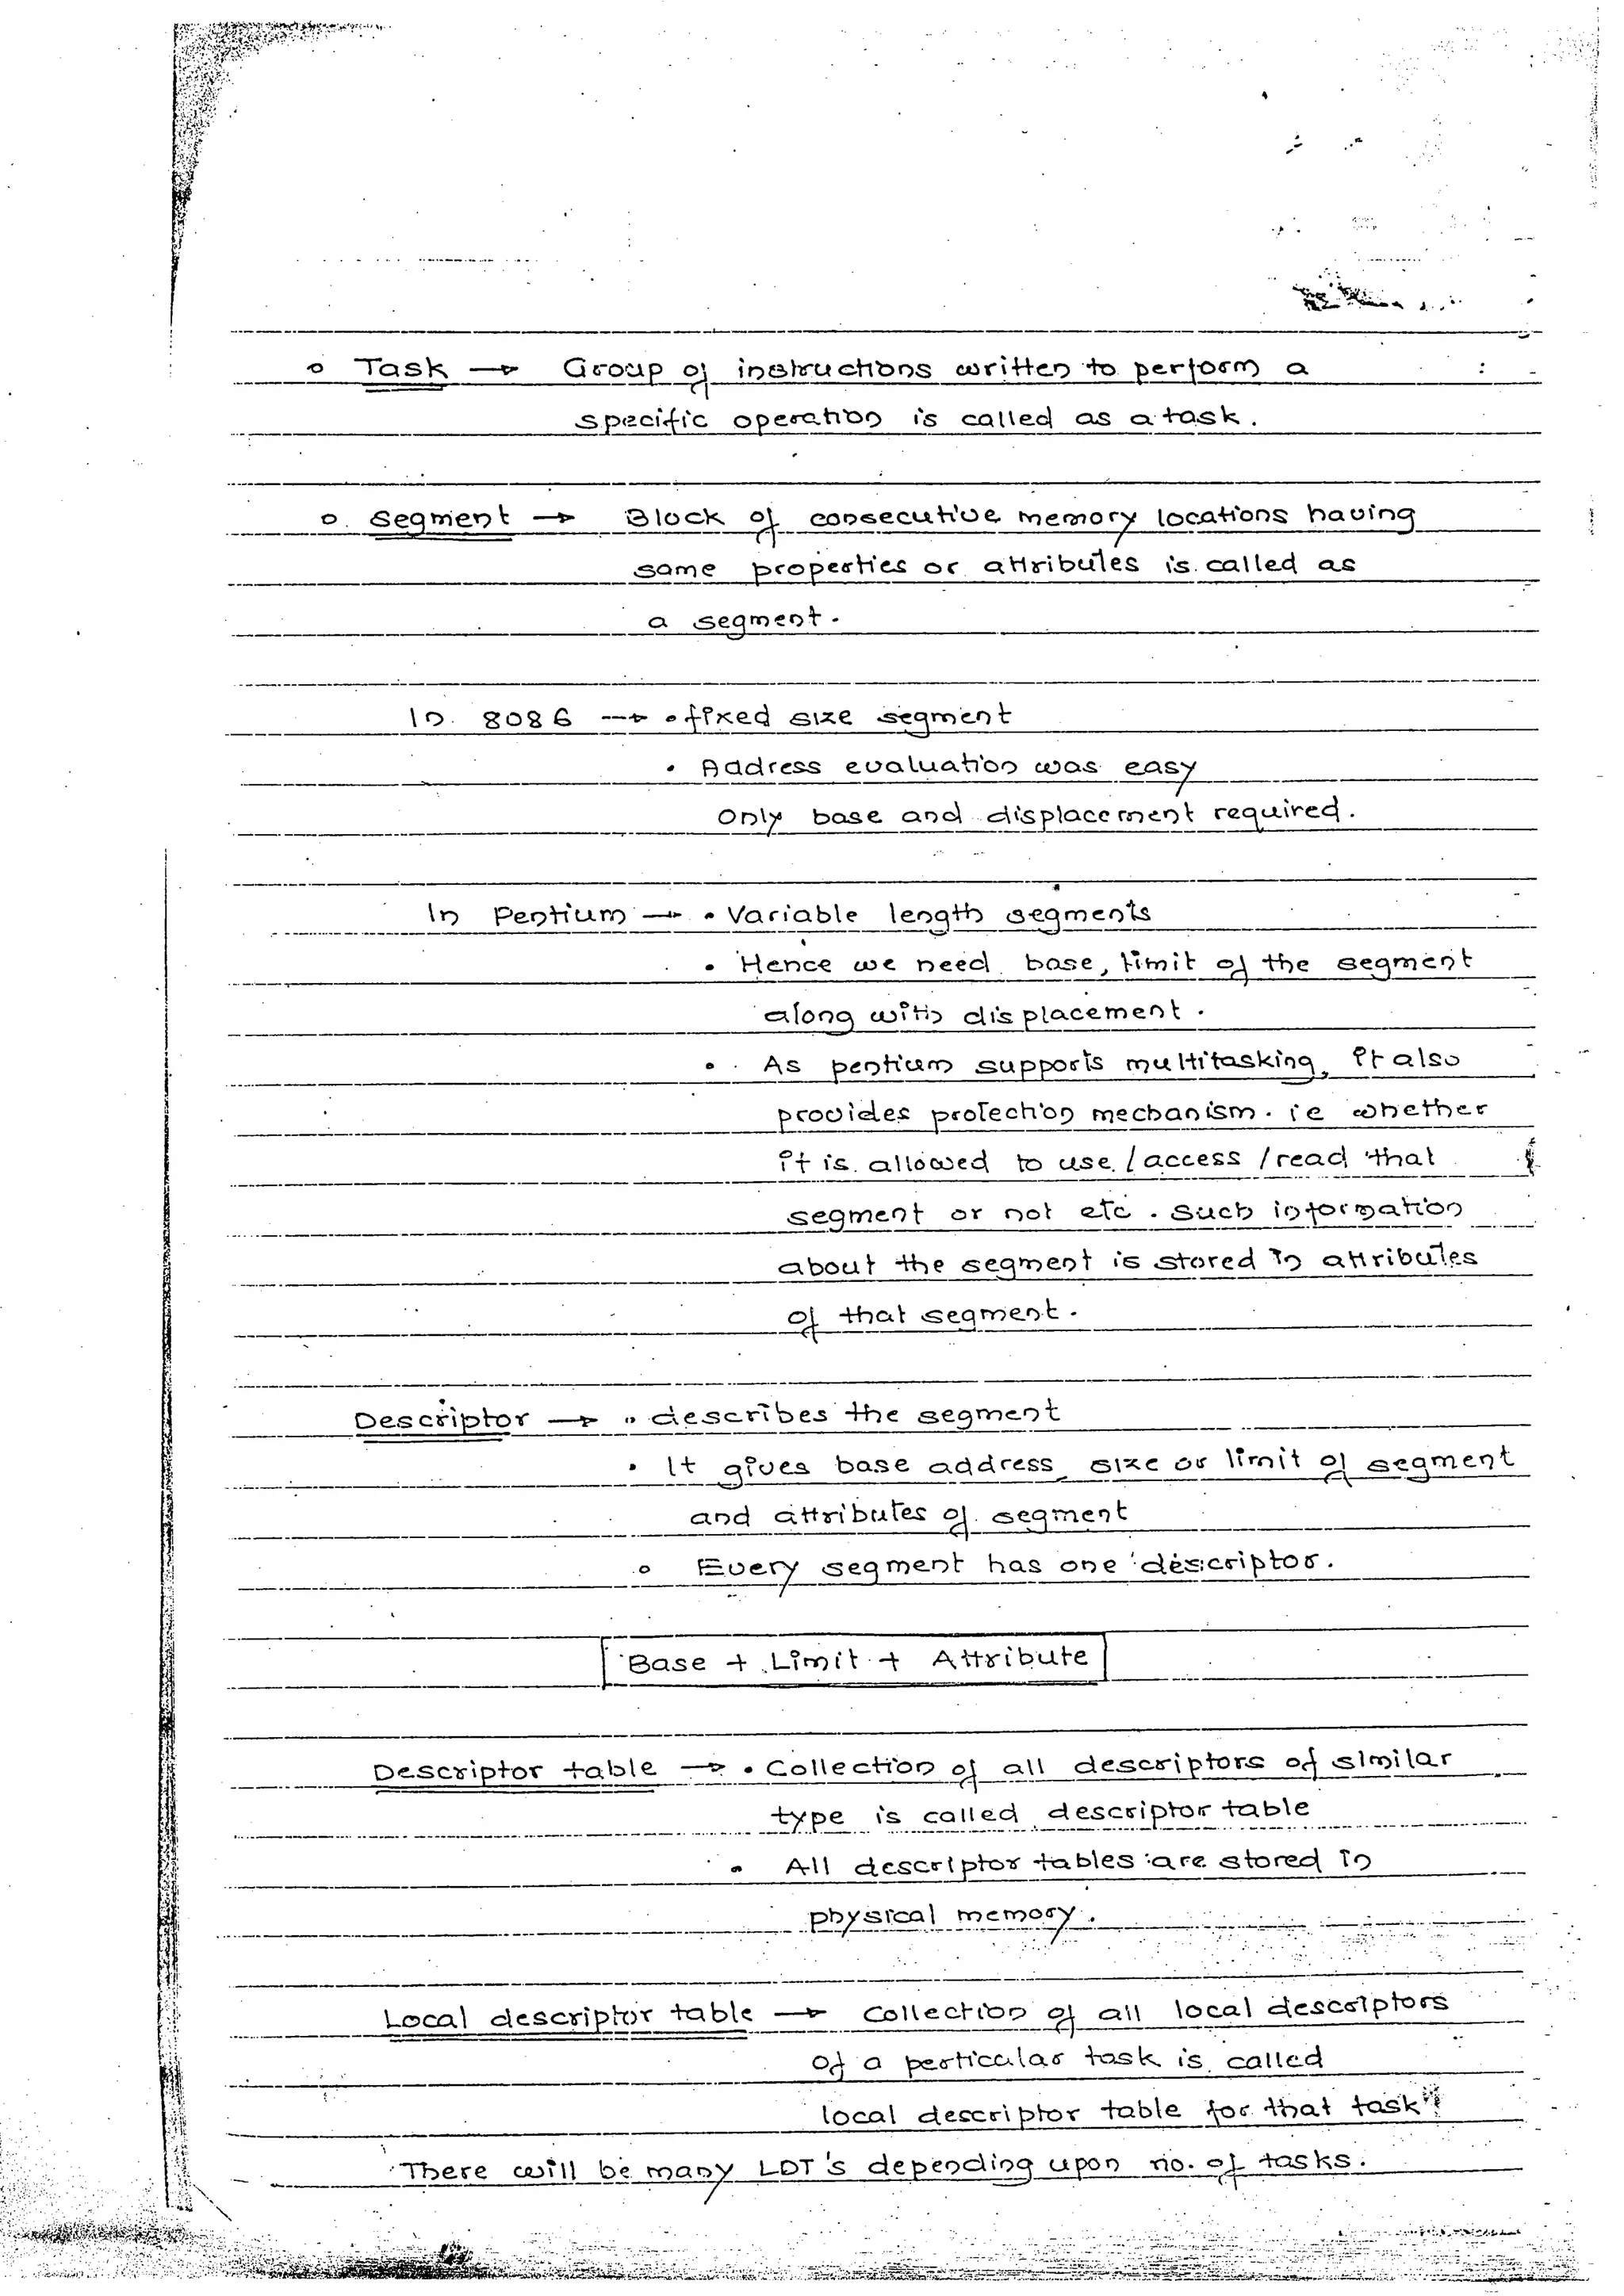 o Task → Group of instructions written to perform a
specific operation is called as a task.
o. segment → Block of consecutive memory locations having
same properties or attributes is called as
a segment.
In 8086 → • fixed size segment
• Address evaluation was easy
only base and displacement required.
In Pentium → • Variable length segments
• Hence we need base, limit of the segment
along with displacement.
• As pentium supports multitasking, it also
provides protection mechanism. ie whether
it is allowed to use / access / read that
segment or not etc. such information
about the segment is stored in attributes
of that segment.
Descriptor → • describes the segment
• It gives base address, size or limit of segment
and attributes of segment
o Every segment has one descriptor.
Base + Limit + Attribute
Descriptor table → • Collection of all descriptors of similar
type is called descriptor table
• All descriptor tables are stored in
physical memory.
Local descriptor table → collection of all local descriptors
of a perticular task is called
local descriptor table for that task
There will be many LDT's depending upon no. of tasks.